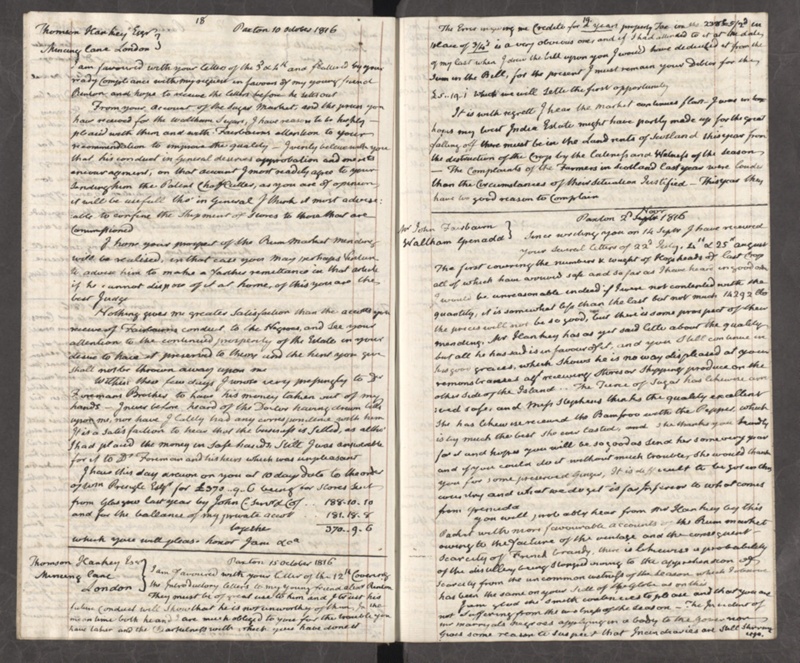 18
Thomson Hankey Esqr Paxton 10 October 1816
Mincing Lane London
I am favoured with your letter of the 3d & 4th and flattered by your
ready Compliance with my request in favour of my young friend
and hope to receive the letter before he sets out
From your account of the Sugar Market and the prices you
have received for the Waltham Sugar, I have reason to be highly
pleased with them and with Fairbairns attention to your
recommendation to improve the quality - I verily believe with you
that his conduct in General deserves approbation and merits
encouragement, on that account I most readily agree to your
Sending him the Patent Chaff Cutter, as you are of opinion
it will be usefull tho' in General I think it most advise-
able to confine the Shipment of Stores to those that are
Commissioned
I hope your prospect of the Rum Market mending
will be realised, in that case you may perhaps venture
to advise him to make a farther remittance in that article
if he cannot dispose of it at home, of this you are the
best Judge
Nothing gives me greater Satisfaction than the accounts you
receive of Fairbairns conduct to the Negroes, and I see your
attention to the continued prosperity of the Estate in your
desire to have it preserved to them, and the hint you give
shall not be thrown away upon me
Within these few days I wrote very pressingly to Dr
Foreman's Brother to have his money taken out of my
hands - I never before heard of the Doctor having drawn bills
upon me, nor have I lately had any correspondence with him
It is a satisfaction to hear that the business is settled, as altho'
I had placed the money in Safe hands Still I was answerable
for it to Dr Foreman and his heirs which was unpleasant
I have this day drawn on you at 10 days date to the order
of Wm Pringle Esqr for £370-9-6 being for Stores Sent
from Glasgow last year by John C & Co 188-10-10
and for the ballance of my private accot 181-18-8
370-9-6
which you will please honor I am &ca
Thomson Hankey Esqr Paxton 15 October 1816
Mincing Lane
London
I am favoured with your letter of the 12th Covering
the Introductory letters to my young friend
They must be of great use to him and I trust his
future conduct will show that he is not unworthy of them, In the
mean time both he and I are much obliged to you for the trouble you
have taken and the with which you have done it
19
The Error in giving me Credit for 2 years property Tax in
place of is a very obvious one, and if I had attended to it at the date
of my last when I drew the bill upon you I would have deducted it from the
Sum in the Bill, for the present I must remain your Debtor for the
£5-19-1 which we will settle the first opportunity
It is with regrett I hear the Market continues flat - I was in
hopes my West India Estate might have partly made up for the great
falling off there must be in the Land rents of Scotland this year from
the destruction of the Crop by the Lateness and Wetness of the Season
- The Complaints of the Farmers in Scotland last year were louder
than the Circumstances of their Situation Justified - This year they
have too good reason to Complain
Mr John Fairbairn Paxton 2d Novr 1816
Waltham Grenada
Since writing you on 14 Septr I have received
your Several letters of 22d July, & 25 August
The first covering the numbers & weight of Hogsheads of last Crop
all of which have arrived safe and so far as I have heard in good order
I would be unreasonable indeed if I were not contented with the
quantity, it is somewhat less than the last but not much
the prices will not be so good, but there is some prospect of their
mending. Mr Hankey has as yet said little about the quality
but all he has said is in favour of it, and you Still continue in
his good graces, which shows he is no way displeased at your
remonstrances agt receiving Stores or Shipping produce on the
other side of the Island. - The Tierce of Sugar has likewise arri-
ved safe, and Miss Stephens thinks the quality excellent
She has likewise received the Bamboo with the Pepper which
is by much the best she ever tasted, and She thanks you kindly
for it and hopes you will be so good as send her some every year
and if you could do it without much trouble, she would thank
you for some preserved Ginger, It is difficult to be got in this
country and what we do get is far inferior to what comes
from Grenada
You will probably hear from Mr Hankey by this
Packet with more favourable accounts of the Rum market
owing to the failure of the vintage and the consequent
scarcity of French brandy, there is likewise a probability
of the distillery being stopped owing to the apprehension of
Scarcity from the uncommon wetness of the Season, which I
has been the same on your side of the globe as on this
I am glad the Stock continues to please and that you are
not Suffering from the wetness of the Season - The Incident of
Mr Negroes applying in a body to the Governor
Gives some reason to suspect that Incendiaries are Still